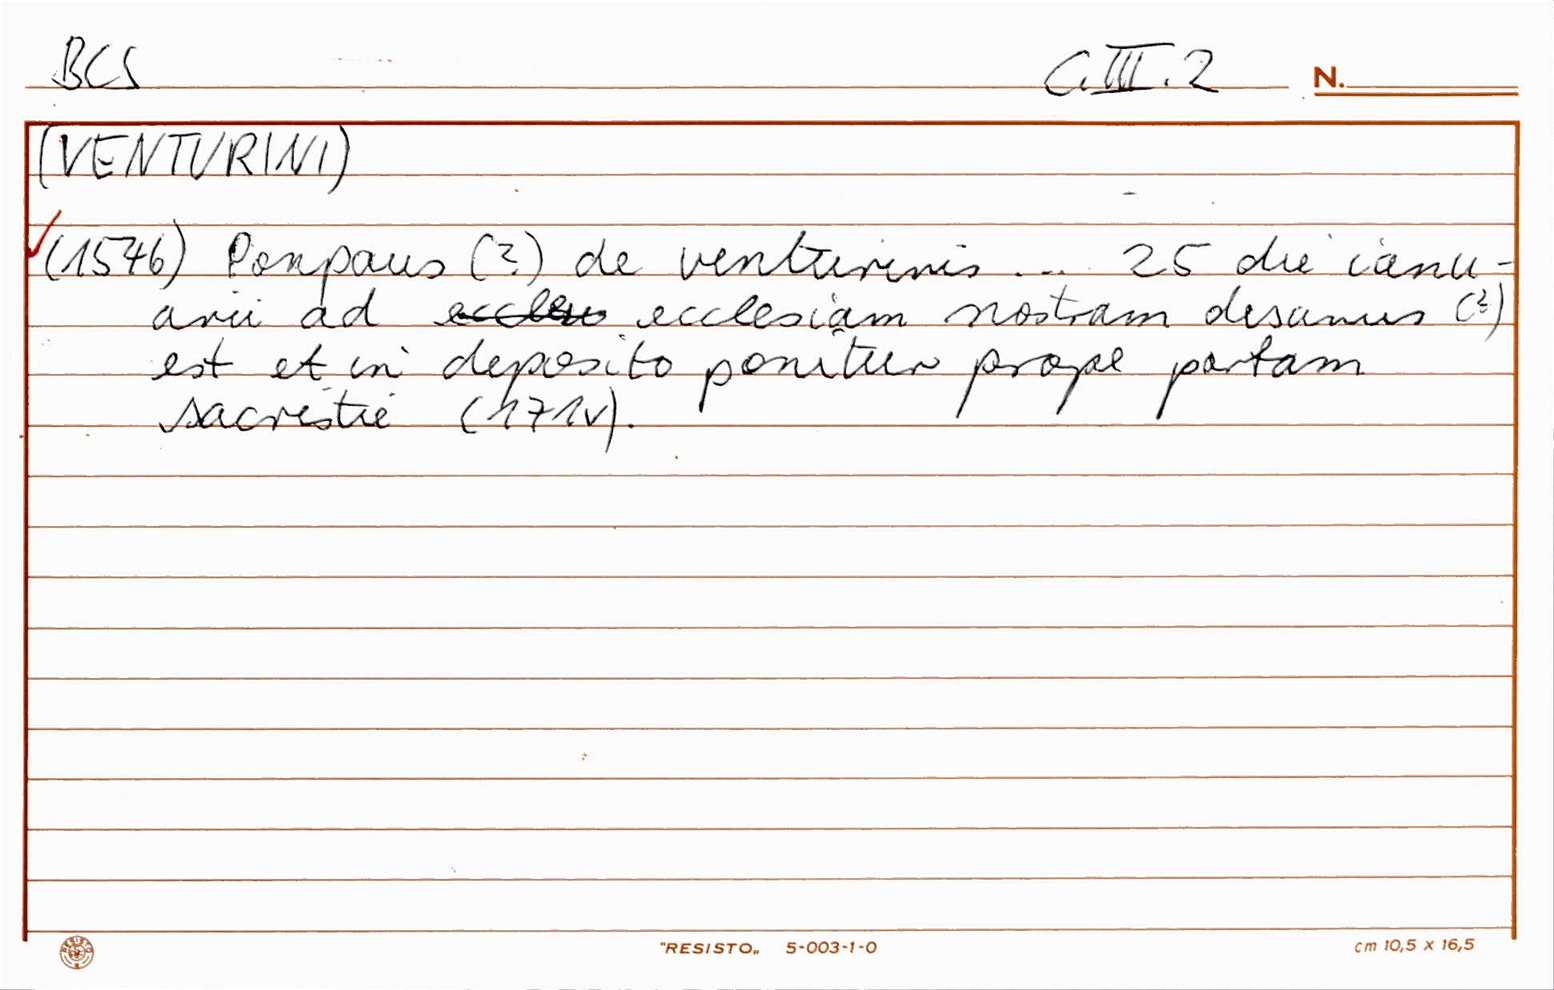 BCS C.III.2 N.
(VENTURINI)
(1546) Ponpaus (?) de venturinis ... 25 die ianu-
arii ad ecclesiam nostram desumus (?)
est et in deposito ponitur prope portam
sacrestie (171v).
"RESISTO„ 5-003-1-0 cm 10,5 x 16,5